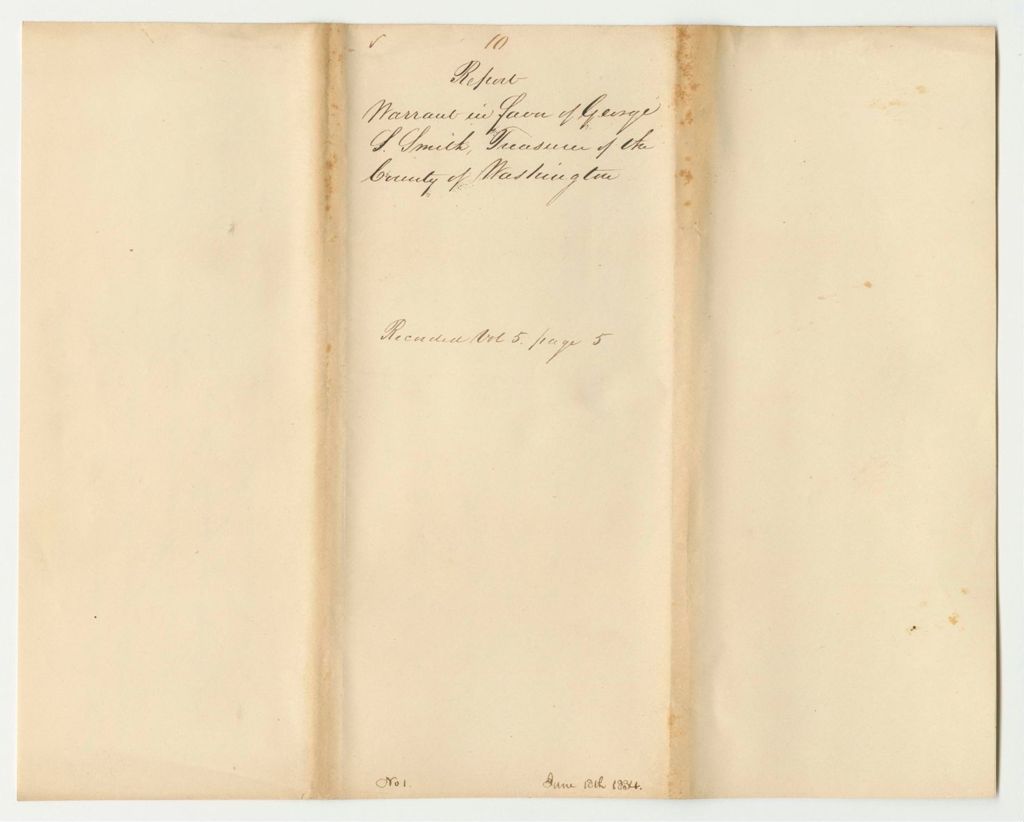 10
Report
Warrant in favor of George
S. Smith, Treasurer of the
County of Washington
Recorded Vol 5. page 5
No 1. June 18th 1834.